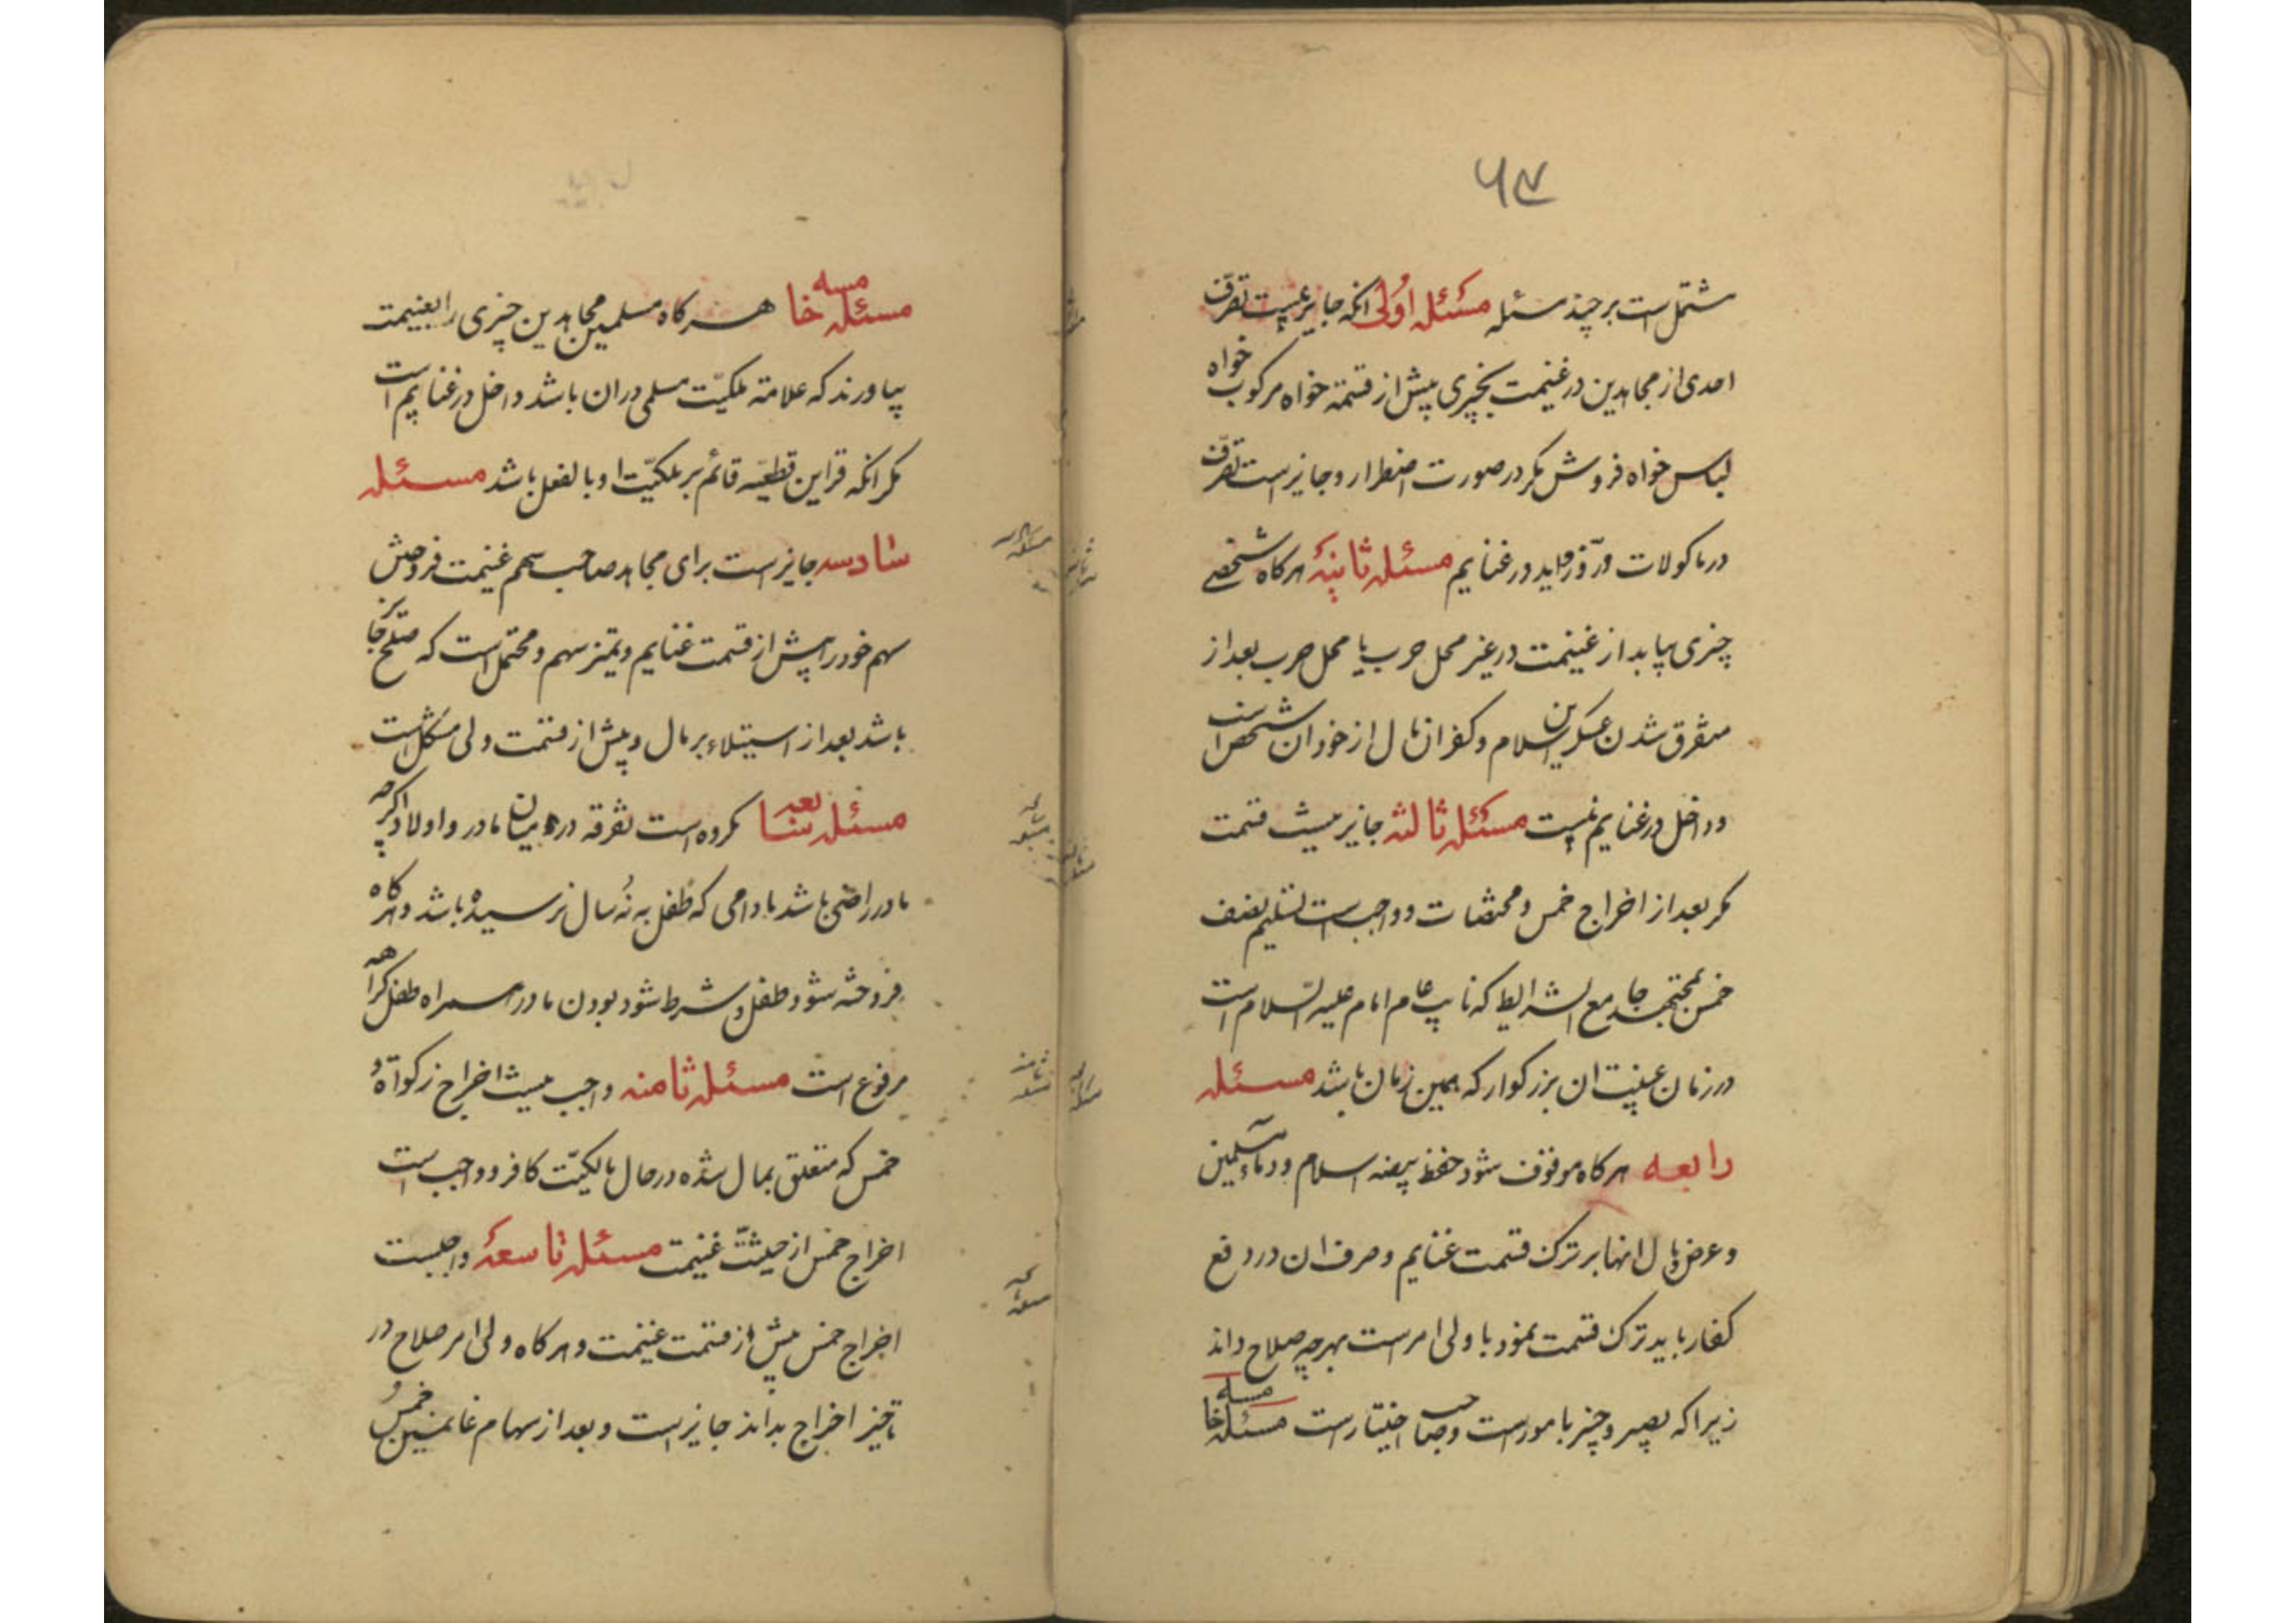 ۶۷
مشتمل است بر چند مسئله مسئله اولی انکه جایز نیست تصرّف
احدی از مجاهدین در غنیمت بچیزی پیش از قسمته خواه مرکوب خواه
لباس خواه فروش مکر در صورت اضطرار و جایز است تصرّف
در ماکولات در غنایم مسئله ثانیهٔ هرکاه شخصی
چیزی بیابد از غنیمت در غیر محل حرب یا محل حرب بعد از
متفرق شدن عسکرین اسلام و کفر ان مال از خود ان شخص است
و داخل در غنایم نیست مسئله ثالثه جایز نیست قسمت
مکر بعد از اخراج خمس و و واجب است تسلیم نصف
خمس بمجتهد جامع الشرایط که نایب عام امام علیه السّلام است
در زمان غیبت ان بزرکوار که همین زمان باشد مسئله
رابعه هرکاه موقوف شود حفظ بیضه اسلام و دماء مسلمین
و عرض و مال انها بر ترک قسمت غنایم و صرف ان در دفع
کفار باید ترک قسمت نمود با ولی امر است بهرچه صلاح داند
زیرا که بصیر و خبیر بامور است و صاحب اختیار است مسئله خامسه
مسئله خامسه هرکاه مسلمین مجاهدین چیزی را بغنیمت
بیاورند که علامة ملکیّت مسلمی در ان باشد داخل در غنایم است
مکر انکه قراین قطعیّه قائم بر ملکیّت او بالفعل باشد مسئله
سادسه جایز است برای مجاهد صاحب سهم غنیمت فروختن
سهم خود را پیش از قسمت غنایم و تمیز سهم و محتمل است که صلح جایز
باشد بعد از استیلاء بر مال و پیش از قسمت ولی مشکل است
مسئله سابعه مکروه است تفرقه در میان مادر و اولاد اکرچه
مادر راضی باشد مادامی که طفل به نُه سال نرسیده باشد و هرکاه
فروخته شود طفل و شرط شود بودن مادر همراه طفل کراهه
مرفوع است مسئله ثامنه واجب نیست اخراج زکواة و
خمس که متعلق بمال شده در حال مالکیّت کافر و واجب است
اخراج خمس از حیثیّت غنیمت مسئله تاسعهٔ واجبست
اخراج خمس پیش از قسمت غنیمت و هرکاه ولی امر صلاح در
تاخیر اخراج بداند جایز است و بعد از سهام غانمین خمس